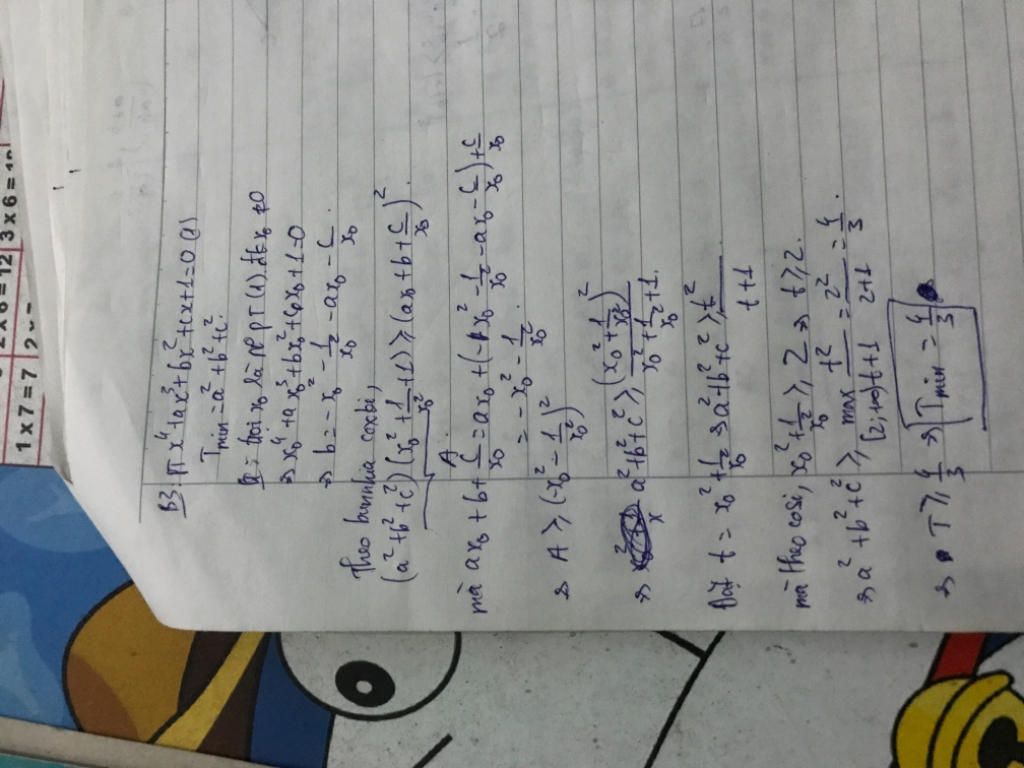 B3: PT x⁴ + ax³ + bx² + cx + 1 = 0 (1)
Tmin = a² + b² + c²
Gọi x₀ là no PT (1). đk x₀ ≠ 0
=> x₀⁴ + ax₀³ + bx₀² + cx₀ + 1 = 0
=> b = -x₀² - 1/x₀² - ax₀ - c/x₀.
Theo bunnhia coxki,
(a² + b² + c²)(x₀² + 1/x₀² + 1) ≥ (ax₀ + b + c/x₀)²
A
mà ax₀ + b + c/x₀ = ax₀ + (-x₀² - 1/x₀² - ax₀ - c/x₀) + c/x₀
= -x₀² - 1/x₀²
=> A ≥ (-x₀² - 1/x₀²)²
=> a² + b² + c² ≥ (x₀² + 1/x₀²)² / x₀² + 1/x₀² + 1.
Đặt t = x₀² + 1/x₀² => a² + b² + c² ≥ t²/t+1
mà theo cosi, x₀² + 1/x₀² ≥ 2 => t ≥ 2.
=> a² + b² + c² ≥ max [2,+∞) t²/t+1 = 2²/2+1 = 4/3.
=> T ≥ 4/3 => Tmin = 4/3
1 x 7 = 7
2 x 6 = 12
3 x 6 = 18